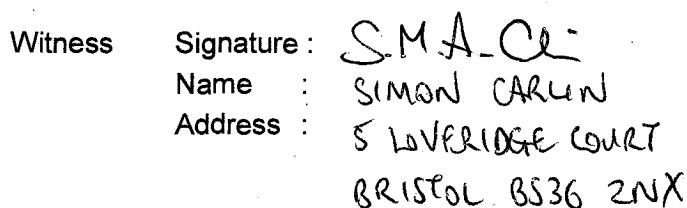 Witness Signature : S.M.A. Cli
Name : SIMON CARLIN
Address : 5 LOVERIDGE COURT
BRISTOL BS36 2NX